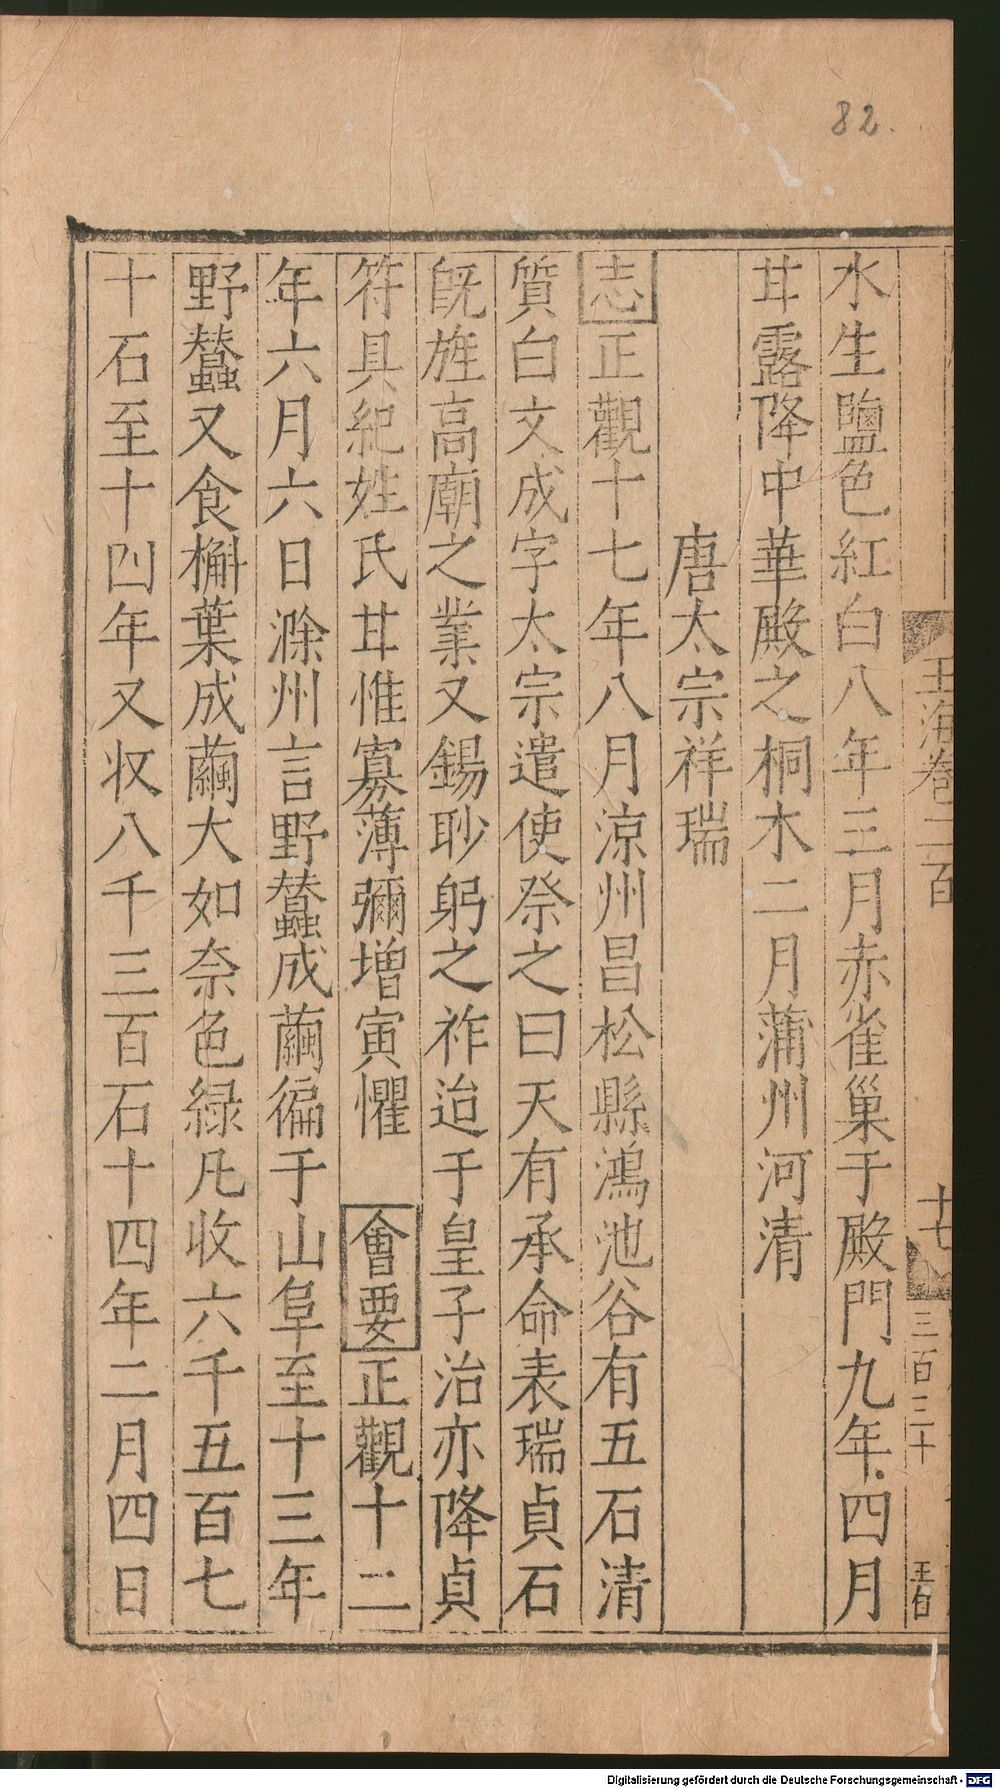 82.
玉海卷二百
十七
三百三十
水生鹽色紅白八年三月赤雀巢于殿門九年四月
甘露降中華殿之桐木二月蒲州河清
唐太宗祥瑞
志正觀十七年八月涼州昌松縣鴻池谷有五石清
質白文成字太宗遣使祭之曰天有承命表瑞貞石
旣旌高廟之業又錫眇躬之祚迨于皇子治亦降貞
符具紀姓氏甘惟寡薄彌增寅懼 會要正觀十二
年六月六日滁州言野蠶成繭徧于山阜至十三年
野蠶又食槲葉成繭大如柰色緑凡收六千五百七
十石至十四年又收八千三百石十四年二月四日
Digitalisierung gefördert durch die Deutsche Forschungsgemeinschaft - DFG